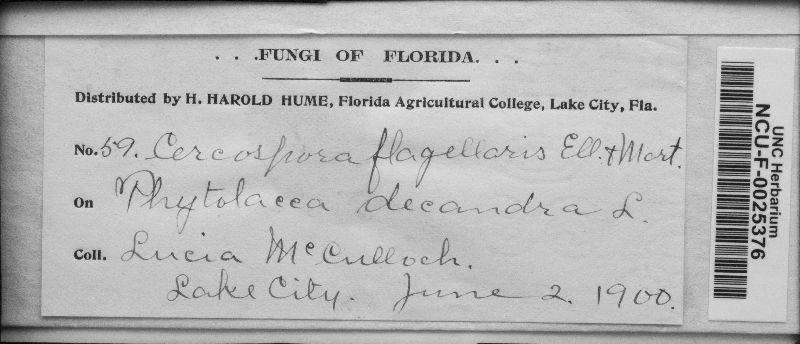 . . .FUNGI OF FLORIDA. . .
Distributed by H. HAROLD HUME, Florida Agricultural College, Lake City, Fla.
No. 59. Cercospora flagellaris Ell. & Mart.
On Phytolacca decandra L.
Coll. Lucia McCulloch.
Lake City. June 2. 1900.
UNC Herbarium
NCU-F-0025376